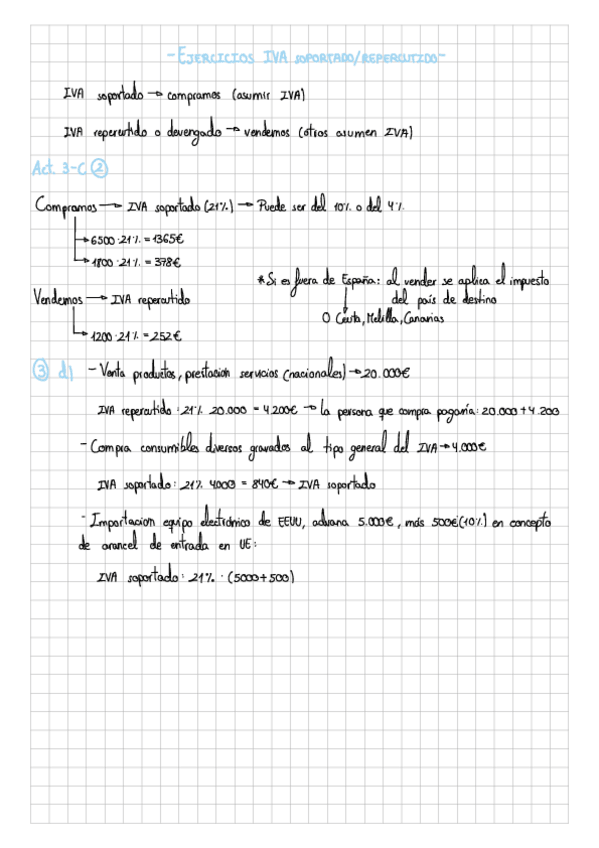 -EJERCICIOS IVA SOPORTADO/REPERCUTIDO-
IVA soportado → compramos (asumir IVA)
IVA repercutido o devengado → vendemos (otros asumen IVA)
Act. 3-C ②
Compramos → IVA soportado (21%) → Puede ser del 10% o del 4%
→ 6500·21% = 1365€
→ 1800·21% = 378€
*Si es fuera de España: al vender se aplica el impuesto
del país de destino
O Ceuta, Melilla, Canarias
Vendemos → IVA repercutido
→ 1200·21% = 252€
③ d) - Venta productos, prestacion servicios (nacionales) → 20.000€
IVA repercutido: 21% 20.000 = 4.200€ → la persona que compra pagaría: 20.000+4.200
- Compra consumibles diversos gravados al tipo general del IVA → 4.000€
IVA soportado: 21% 4000 = 840€ → IVA soportado
- Importacion equipo electrónico de EEUU, aduana 5.000€, más 500€ (10%) en concepto
de arancel de entrada en UE:
IVA soportado: 21% · (5000+500)